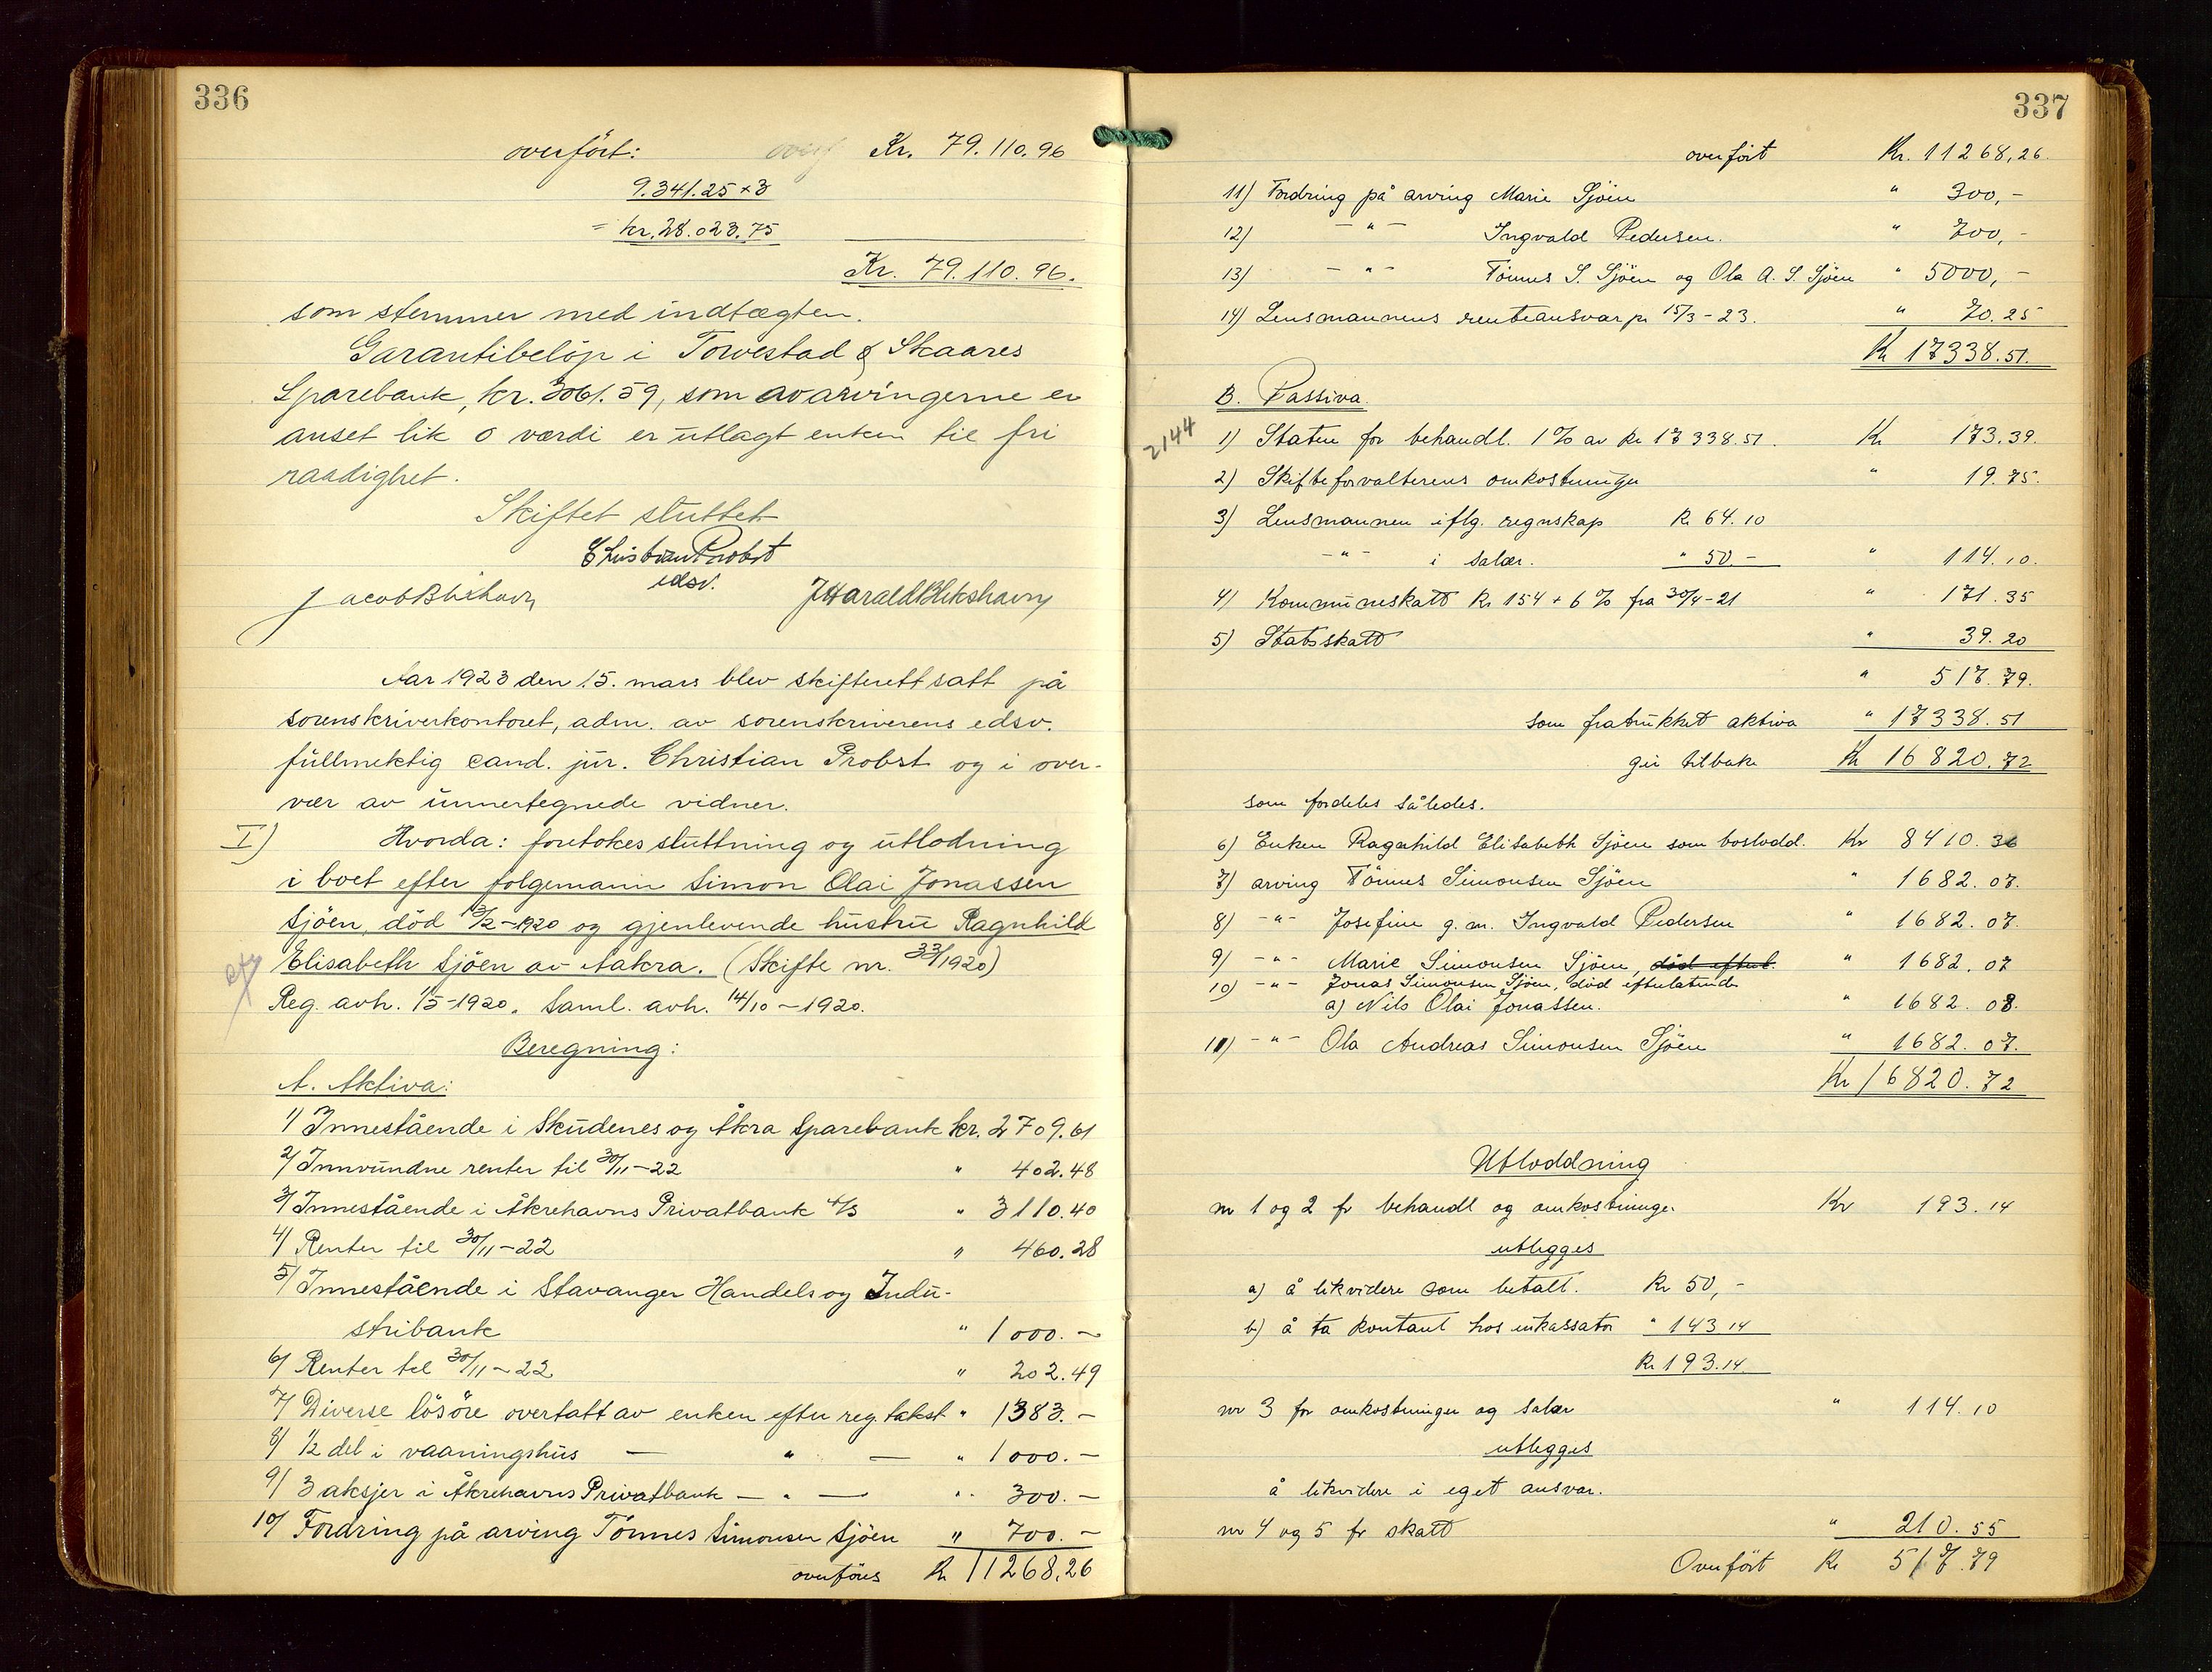 336
overført: Kr. 79.110.96
9.341.25 x 3
= kr. 28.023.75
Kr. 79.110.96.
som stemmer med indtægten.
Garantibeløp i Torvestad & Skaares
Sparebank, kr. 3061.59, som av arvingerne er
anset lik 0 værdi er utlagt enken til fri
raadighet.
Skiftet sluttet
Christian Probst
edsv.
Jacob Blikshavn J Harald Blikshavn
Aar 1923 den 15. mars blev skifterett satt på
sorenskriverkontoret, adm. av sorenskriverens edsv.
fullmektig cand. jur. Christian Probst og i over-
vær av unnertegnede vidner.
I) Hvorda: foretokes sluttning og utlodning
i boet efter følgemann Simon Olai Jonassen
Sjöen, död 13/2-1920 og gjenlevende hustru Ragnhild
Elisabeth Sjöen av Aakra. (Skifte nr. 33/1920)
Reg. avh. 1/5-1920. Saml. avh. 14/10-1920.
Beregning:
A. Aktiva:
1) Innestående i Skudenes og Åkra Sparebank kr. 2709.61
2) Innvundne renter til 30/11-22 " 402.48
3) Innestående i Åkrehavns Privatbank " 3110.40
4) Renter til 30/11-22 " 460.28
5) Innestående i Stavanger Handels og Indu-
stribank " 1000.-
6) Renter til 30/11-22 " 202.49
7) Diverse lösöre overtatt av enken efter reg. takst " 1383.-
8) 1/2 del i vaaningshus — " — " 1000.-
9) 3 aksjer i Åkrehavns Privatbank — " — " 300.-
10) Fordring på arving Tönnes Simonsen Sjöen " 700.-
overføres Kr 11268,26
337
overført Kr. 11268,26.
11) Fordring på arving Marie Sjöen " 300,-
12) -"- Ingvald Pedersen. " 700,-
13) -"- Tönnes S. Sjöen og Ola A. S. Sjöen " 5000,-
14) Lensmannens renteansvar pr 15/3-23. " 70.25
Kr 17338.51.
B. Passiva.
2144
1) Staten for behandl. 1% av kr 17338.51. Kr 173.39.
2) Skifteforvalterens omkostninger " 19.75.
3) Lensmannen iflg. regnskap Kr 64.10
-"- i salær. " 50.- " 114.10.
4) Kommuneskatt kr 154 + 6% fra 30/4-21 " 171.35
5) Statsskatt " 39.20
" 517.79.
som fratrukket aktiva " 17338.51
gir tilbake Kr 16820.72
som fordeles således.
6) Enken Ragnhild Elisabeth Sjöen som boslodd. Kr 8410.36
7) arving Tönnes Simonsen Sjöen " 1682.07.
8) -"- Josefine g.m. Ingvald Pedersen " 1682.07.
9) -"- Marie Simonsen Sjöen, död efterl. " 1682.07
10) -"- Jonas Simonsen Sjöen, död efterlatende
a) Nils Olai Jonassen. " 1682.08.
11) -"- Ola Andreas Simonsen Sjöen " 1682.07.
Kr 16820.72
Utloddning
nr 1 og 2 for behandl og omkostninger Kr 193.14
utlegges
a) å likvidere som betalt. Kr 50,-
b) å ta kontant hos inkassator " 143.14
Kr 193.14
nr 3 for omkostninger og salær " 114.10
utlegges
å likvidere i eget ansvar.
nr 4 og 5 for skatt " 210.55
Overført Kr 517.79